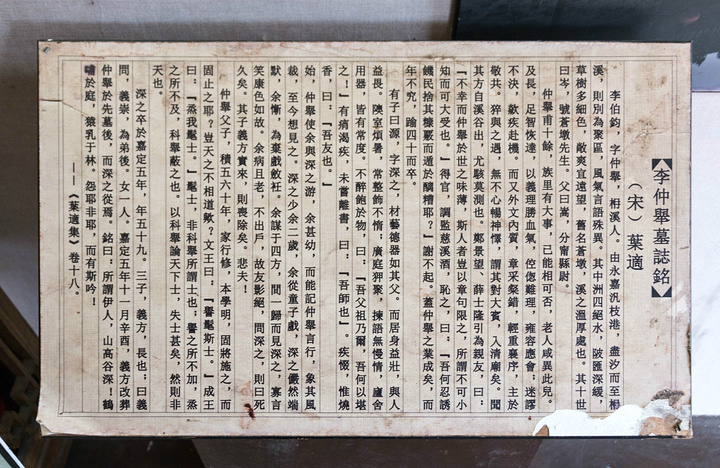 【李仲舉墓誌銘】
（宋）葉適
李伯鈞，字仲舉，枏溪人。由永嘉汎枝港，盡汐而至枏
溪，則別為聚區，風氣言語殊異。其中洲四絕水，陂匯深緩，
草樹多細色，敞爽宜遠望，舊名蒼墩，溪之滙厚處也。其十世
曰岑，號蒼墩先生。父曰嵩，分甯縣尉。
仲舉甫十餘，族里有大事，已能相可否，老人咸異此兒。
及長，足智恢達，以義理勝血氣，倥傯難理，雍容應會；迷謬
不決，歡疾赴機。而又外文內質，章采粲錯，輕重襄序，主於
敬共。猝與之遇，無不心暢神懌，謂其對大賓，入清廟矣。聞
其方自溪谷出，尤駭莫測也。鄭景望、薛士隆引為親友，曰：
「不幸而仲舉於世之味薄，斯人者豈以章句限之，所謂不可小
知而可大受也。」得官，調監慈溪酒，恥之，曰：「吾何忍誘
饑民捨其糠覈而遁於醨糟耶？」謝不起。蓋仲舉之業成矣，而
年不究，踰四十而卒。
有子曰源，字深之，材藝德器如其父。而居身益壯，與人
益畏。陝室煩暑，常整飾不惰；廣庭狎聚，揀語無慢情，廬舍
用器，皆有常度。不醉飽於物，曰：「吾父祖乃爾，吾何以堪
之！」有病渴疾，未嘗離書，曰：「吾師也」。疾惙，惟燒
香，曰：「吾友也。」
始，仲舉使余與深之游，余甚幼，而能記仲舉言行，象其風
裁，至今想見之。深之少余二歲，余從童子戲，深之儼然端
默，余慚，為棄戲斂衽。余謀于四方，間一歸而見深之，寡言
笑康色如故。余病且老，不出戶，故友影絕，問深之，則曰死
久矣。其子義方實來，則喪除矣。悲夫！
仲舉父子，積五六十年，家行修，本學明，固將施之，而
固止之耶？豈天之不相道歟？文王曰：「譽髦斯士。」成王
曰：「烝我髦士。」髦士，非科舉所謂士也；譽之所不加，烝
之所不及，科舉蔽之也。以科舉論天下士，失士甚矣，然則非
天也。
深之卒於嘉定五年，年五十九。三子，義方，長也；曰義
問，義崇，為弟後。女一人。嘉定五年十一月辛酉，義方改葬
仲舉於先墓後，而深之從焉。銘曰：所謂伊人，山高谷深！鶴
嘯於庭，猿乳于林。怨耶非耶，而有斯吟！
——《葉適集》卷十八。